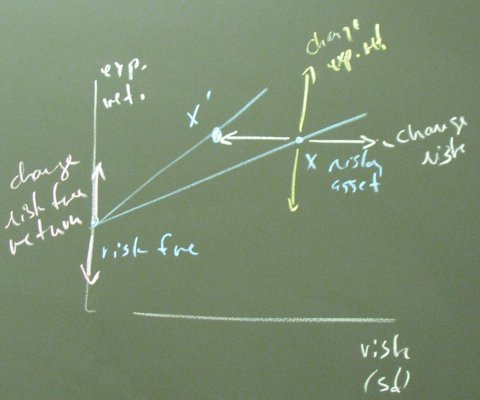 exp.
ret.
change
exp. ret.
X'
change
risk
X risky
asset
change
risk free
return
risk free
risk
(sd)